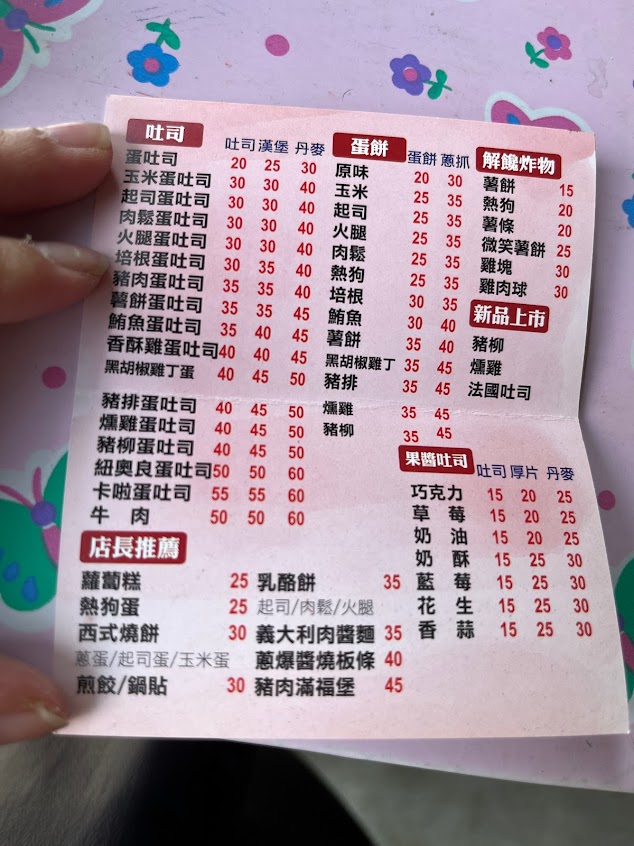 吐司 吐司 漢堡 丹麥
蛋吐司 20 25 30
玉米蛋吐司 30 30 40
起司蛋吐司 30 30 40
肉鬆蛋吐司 30 30 40
火腿蛋吐司 30 30 40
培根蛋吐司 30 35 40
豬肉蛋吐司 30 35 40
薯餅蛋吐司 35 35 45
鮪魚蛋吐司 35 40 45
香酥雞蛋吐司 40 40 45
黑胡椒雞丁蛋 40 45 50
豬排蛋吐司 40 45 50
燻雞蛋吐司 40 45 50
豬柳蛋吐司 40 45 50
紐奧良蛋吐司 50 50 60
卡啦蛋吐司 55 55 60
牛 肉 50 50 60
蛋餅 蛋餅 蔥抓
原味 20 30
玉米 25 35
起司 25 35
火腿 25 35
肉鬆 25 35
熱狗 25 35
培根 30 35
鮪魚 30 40
薯餅 35 40
黑胡椒雞丁 35 45
豬排 35 45
燻雞 35 45
豬柳 35 45
解饞炸物
薯餅 15
熱狗 20
薯條 20
微笑薯餅 25
雞塊 30
雞肉球 30
新品上市
豬柳
燻雞
法國吐司
果醬吐司 吐司 厚片 丹麥
巧克力 15 20 25
草 莓 15 20 25
奶 油 15 20 25
奶 酥 15 25 30
藍 莓 15 25 30
花 生 15 25 30
香 蒜 15 25 30
店長推薦
蘿蔔糕 25
熱狗蛋 25
西式燒餅 30
蔥蛋/起司蛋/玉米蛋
煎餃/鍋貼 30
乳酪餅 35
起司/肉鬆/火腿
義大利肉醬麵 35
蔥爆醬燒板條 40
豬肉滿福堡 45